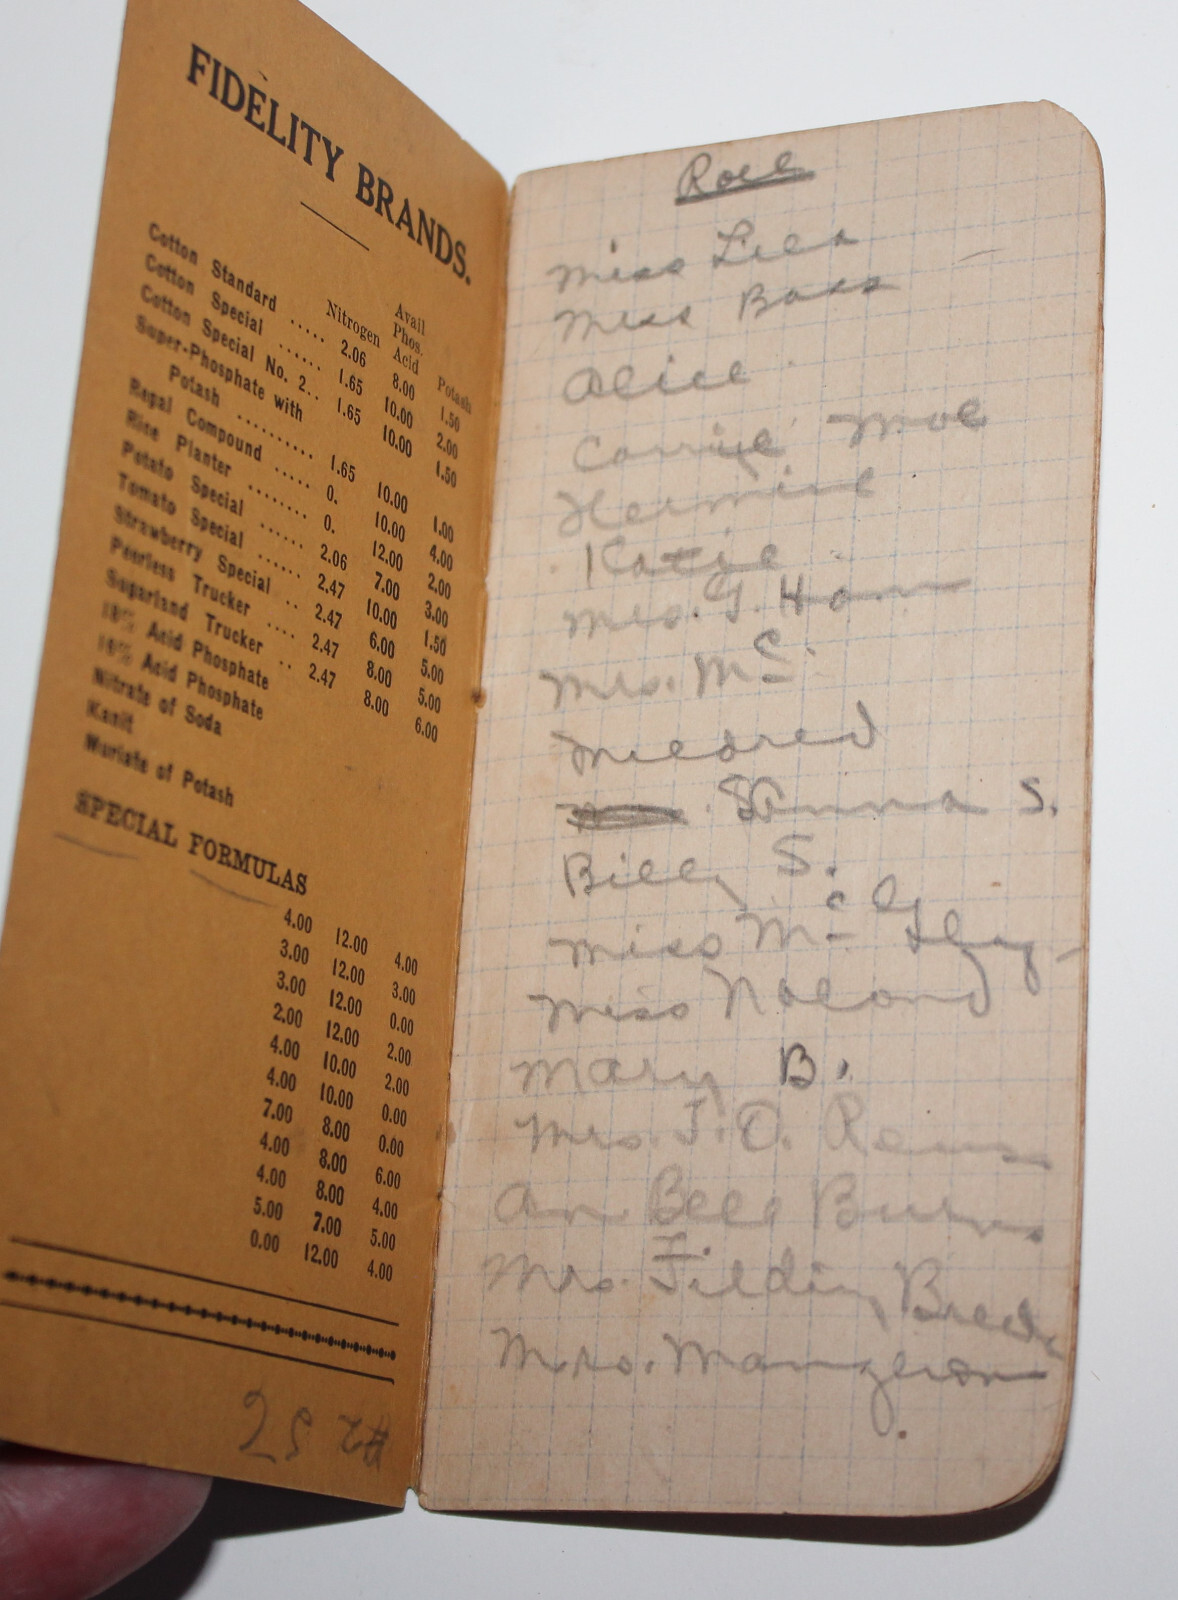 FIDELITY BRANDS.
Nitrogen Avail Phos. Acid Potash
Cotton Standard ..... 2.06 8.00 1.50
Cotton Special ...... 1.65 10.00 2.00
Cotton Special No. 2.. 1.65 10.00 1.50
Super-Phosphate with
Potash .......... 1.65 10.00 1.00
Regal Compound ..... 0. 10.00 4.00
Rice Planter ........ 0. 12.00 2.00
Potato Special ...... 2.06 7.00 3.00
Tomato Special ..... 2.47 10.00 1.50
Strawberry Special .. 2.47 6.00 5.00
Peerless Trucker .... 2.47 8.00 5.00
Sugarland Trucker .. 2.47 8.00 6.00
18% Acid Phosphate
16% Acid Phosphate
Nitrate of Soda
Kanit
Muriate of Potash
SPECIAL FORMULAS
4.00 12.00 4.00
3.00 12.00 3.00
3.00 12.00 0.00
2.00 12.00 2.00
4.00 10.00 2.00
4.00 10.00 0.00
7.00 8.00 0.00
4.00 8.00 6.00
4.00 8.00 4.00
5.00 7.00 5.00
0.00 12.00 4.00
#2
Roll
Miss Lila
Miss Bass
Alice
Carrie Moe
Hermine
Katie
Mrs. G. Ham
Mrs. Mc
Mildred
Anna S.
Billy S.
Miss Mc
Miss Noland
Mary B.
Mrs. J. O.
Ann Bell Burns
Mrs. Filding
Mrs.